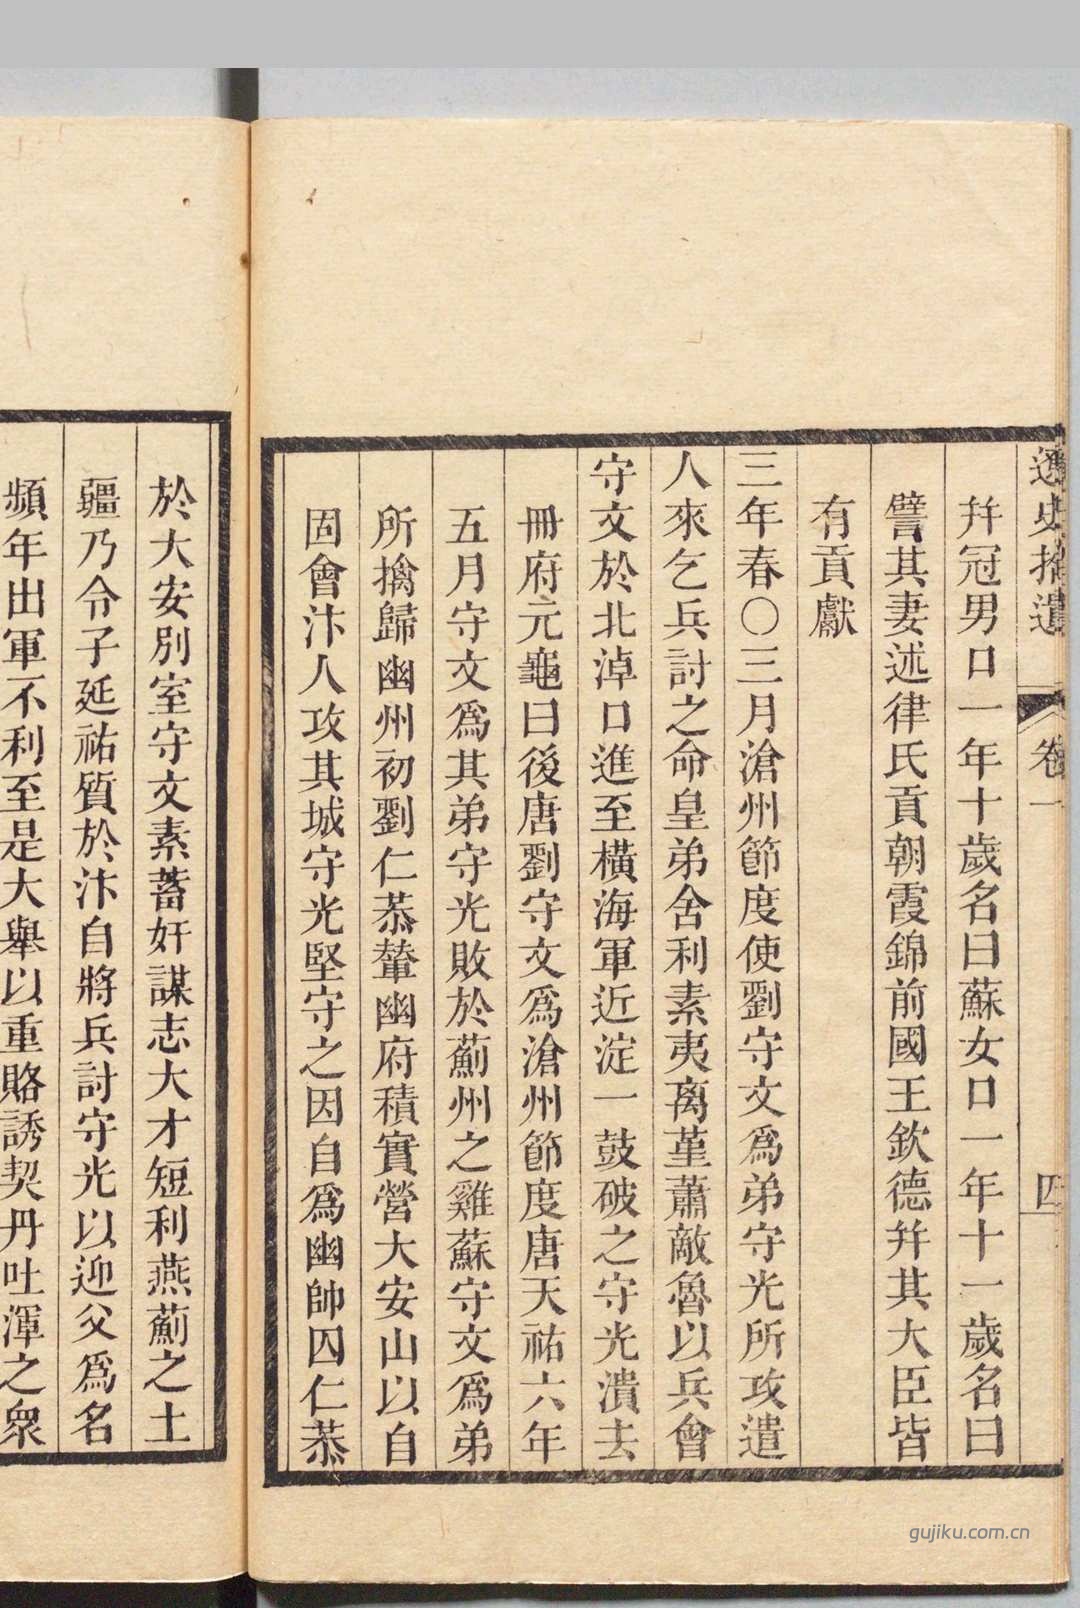 遼史拾遺
卷一
四
幷冠男口一年十歲名曰蘇女口一年十一歲名曰
譬其妻述律氏貢朝霞錦前國王欽德幷其大臣皆
有貢獻
三年春〇三月滄州節度使劉守文爲弟守光所攻遣
人來乞兵討之命皇弟舍利素夷离堇蕭敵魯以兵會
守文於北淖口進至橫海軍近淀一鼓破之守光潰去
冊府元龜曰後唐劉守文爲滄州節度唐天祐六年
五月守文爲其弟守光敗於薊州之雞蘇守文爲弟
所擒歸幽州初劉仁恭輦幽府積實營大安山以自
固會汴人攻其城守光堅守之因自爲幽帥囚仁恭
於大安別室守文素蓄奸謀志大才短利燕薊之土
疆乃令子延祐質於汴自將兵討守光以迎父爲名
頻年出軍不利至是大舉以重賂誘契丹吐渾之衆
gujiku.com.cn